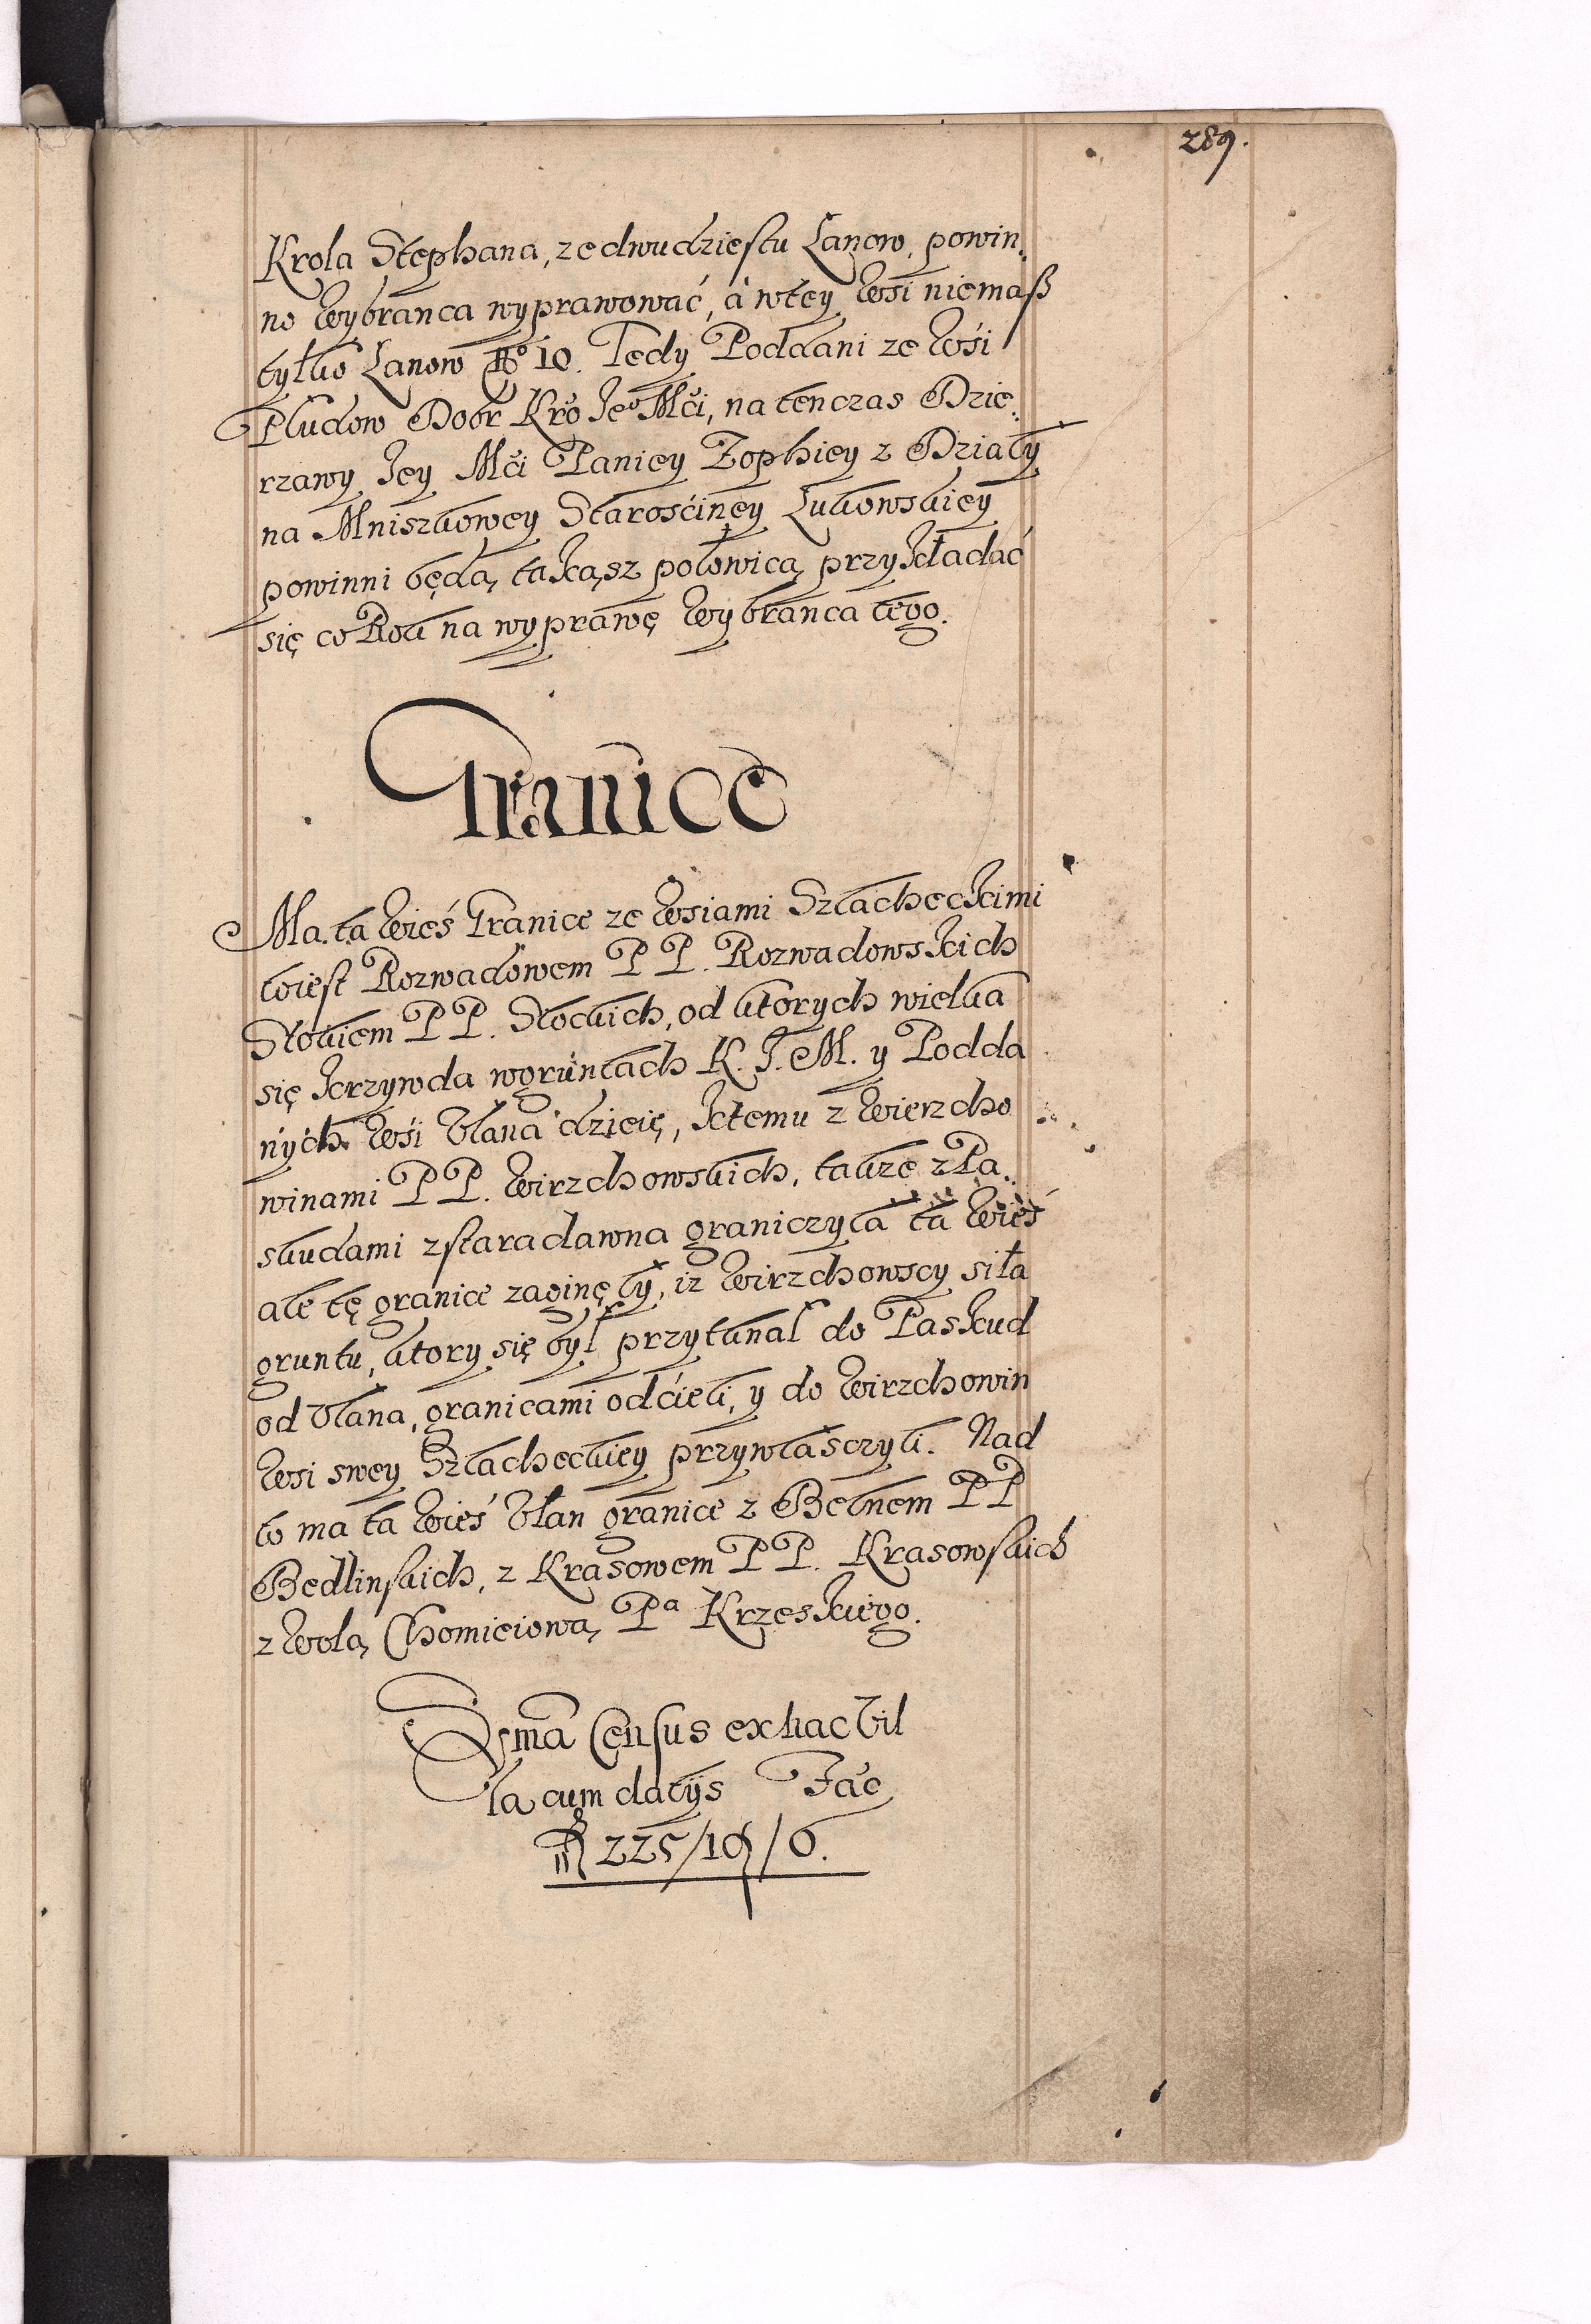 289.
Krola Stephana, ze dwudziestu Łanow, powin„
no Wybranca wyprawować, á wtey Wsi niemasz
tylko Lanow No 10. Tedy Poddani ze Wśi
Pludow Dobr Kro Jeo Mći, na ten czas Dzie„
rzawy Jey Mći Paniey Zophiey z Działy
na Mniszkowey Starośćiney Lukowskiey
powinni będą, takąsz połowicą przykładać
się co Rok na wyprawę Wybranca tego.
Granice
Ma ta Wieś Granice ze Wsiami Szlacheckimi
to iest Rozwadowem PP. Rozwadowskich
Stokiem PP. Stockich, od ktorych wielka
się krzywda wgruntach K. J. M. y Podda
nych Wśi Vlana dzieię, ktemu z Wierzcho
winami PP. Wirzchowskich, takze z Pa„
skudami zstaradawna graniczyła ta Wieś
ale tę granice zaginęły, iz Wirzchowscy siła
gruntu, ktory się był przytknał do Paskud
od Vlana, granicami odćieli, y do Wirzchowin
Wsi swey Szlacheckiey przywlasczyli. Nad
to ma ta Wieś Vłan granice z Belnem PP
Bedlinskich, z Krasowem PP. Krasowskich
z Wolą Chomieiową Pa Krzeskiego.
Sma Census ex hac Vil
la cum datijs Fac
225/19/6.